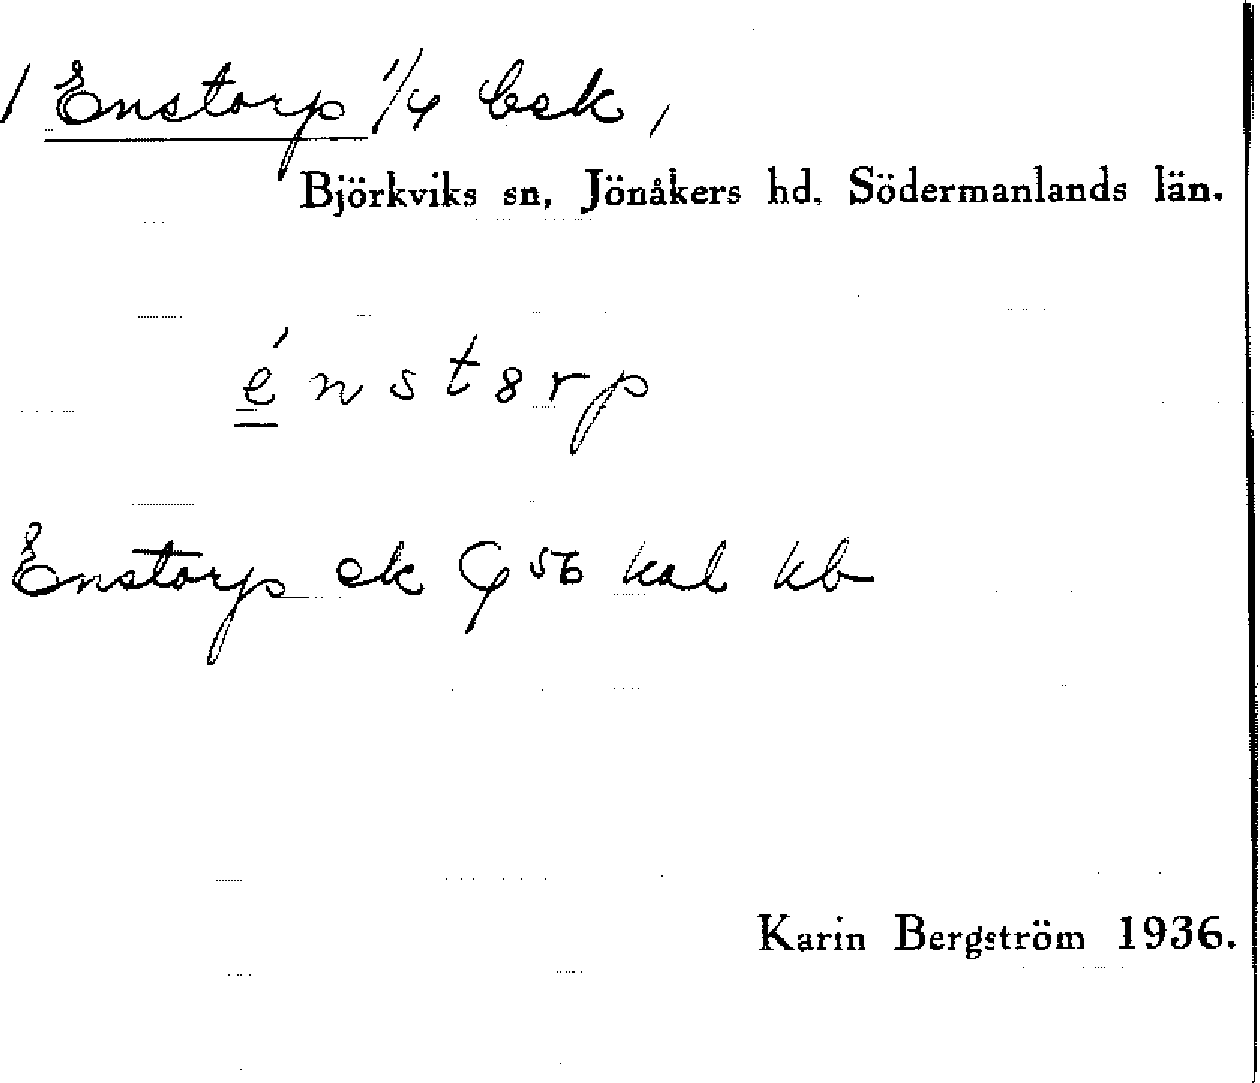 / Enstorp 1/4 
Björkviks sn, Jönåkers hd. Södermanlands län.
énst8rp
Enstorp ek G 56 kal kb
Karin Bergström 1936.